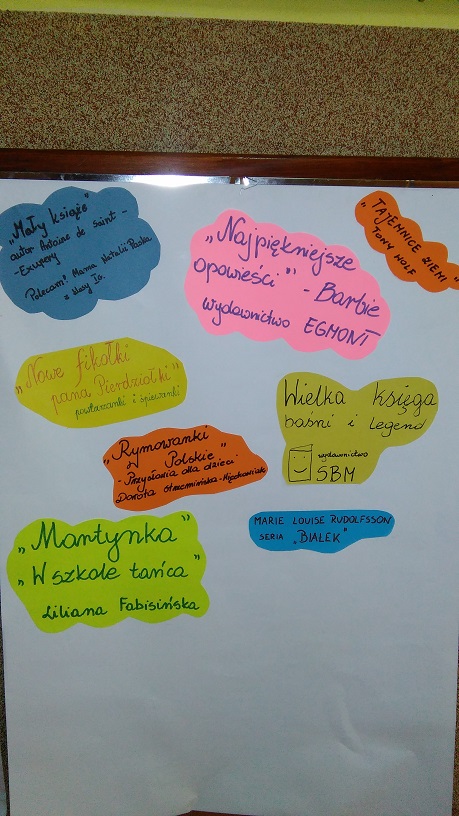 „Mały książę”
autor Antoine de Saint -
- Exupery
Polecam! Mama Natalii
z klasy Ia.
„Najpiękniejsze
opowieści” - Barbie
wydawnictwo EGMONT
TAJEMNICE ZIEMI
TONY WOLF
„Nowe fikołki
pana Pierdziołki”
powtarzanki i śpiewanki
Wielka księga
baśni i legend
wydawnictwo
SBM
„Rymowanki
Polskie”
- Przysłowia dla dzieci
Dorota Strzemińska-Więckowiak
MARIE LOUISE RUDOLFSSON
SERIA „BIAŁEK”
„Martynka”
„W szkole tańca”
Liliana Fabisińska